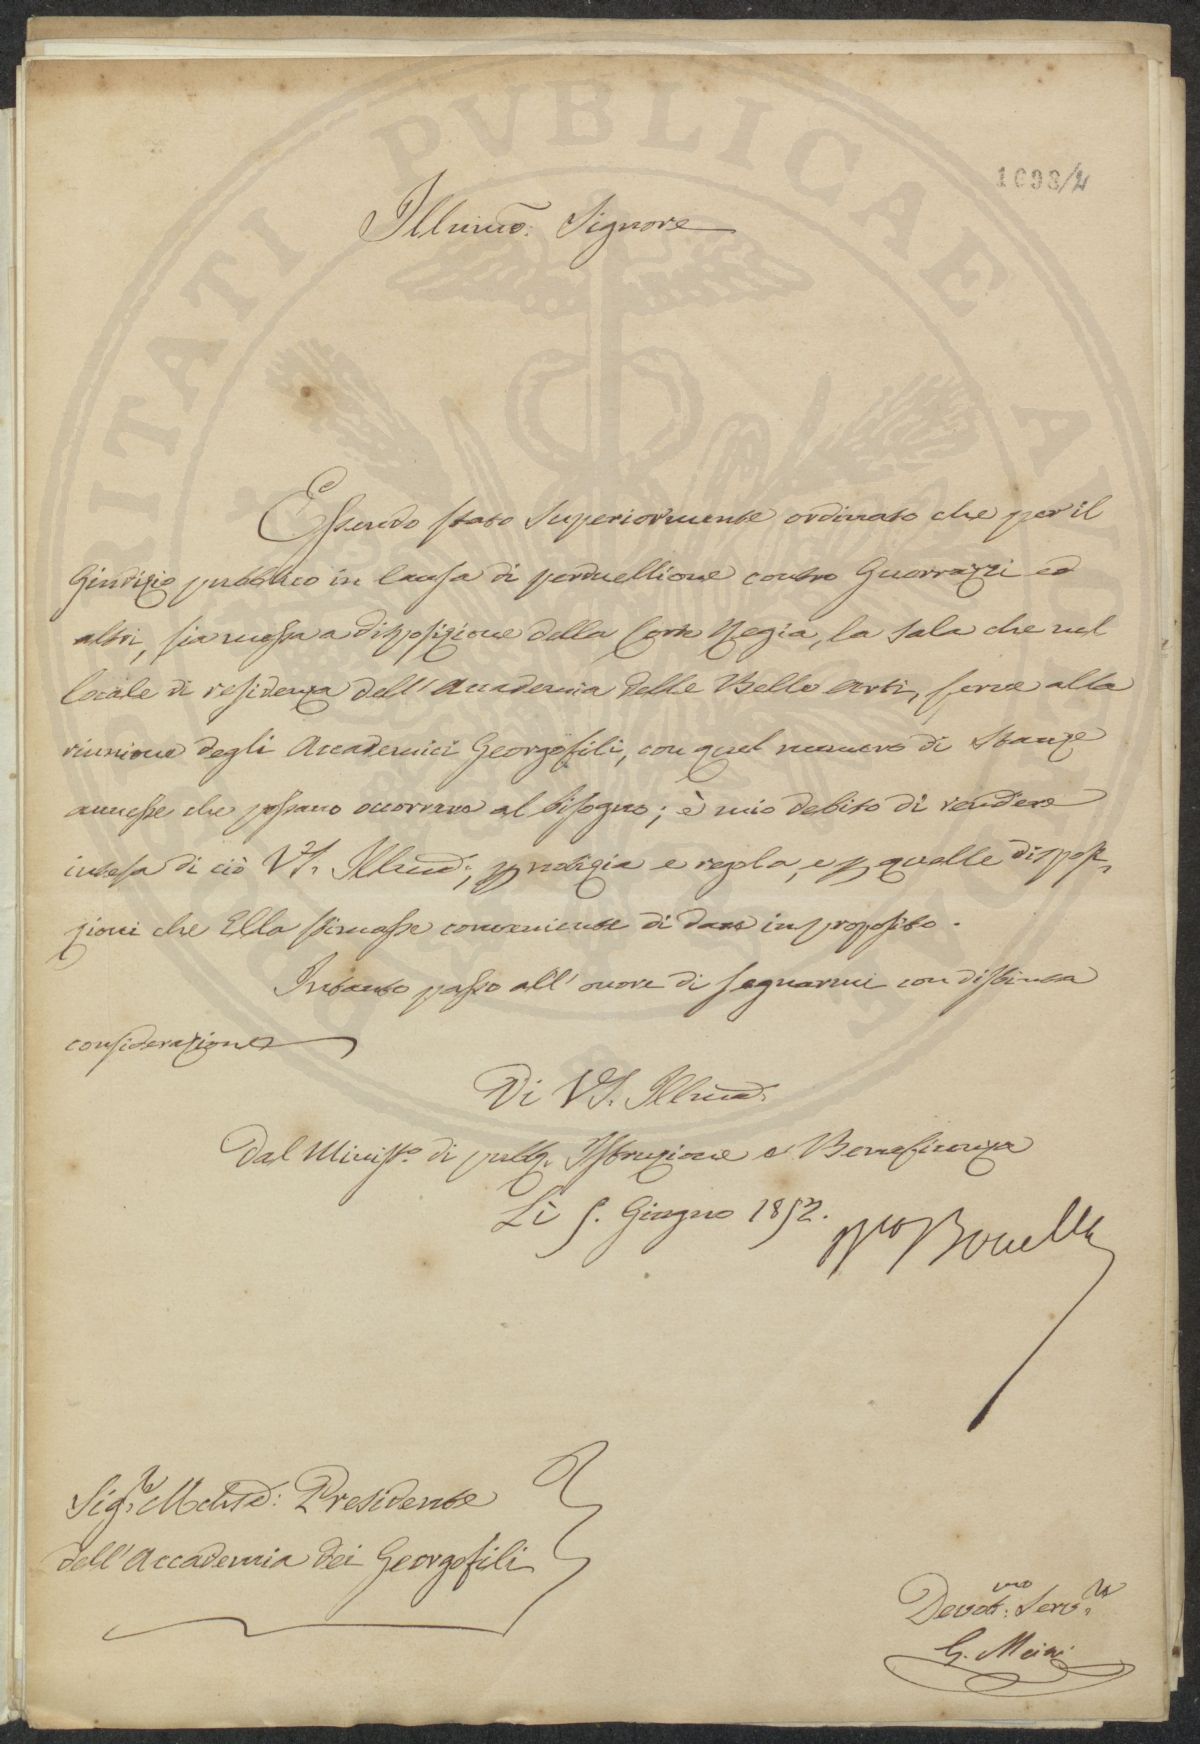 PROSPERITATI PVBLICAE AVGENDAE
1093/2
Illumo: Signore
Essendo stato Superiormente ordinato che per il
Giudizio pubblico in Causa di perduellione contro Guerrazzi ed
altri, sia messa a disposizione della Corte Regia, la Sala che nel
locale di residenza dell'Accademia delle Belle Arti, serve alla
riunione degli Accademici Georgofili, con quel numero di Stanze
annesse che possano occorrere al bisogno; è mio debito di rendere
intesa di ciò VS. Illma:, p notizia e regola, e p quelle disposi,
zioni che Ella stimasse conveniente di dare in proposito.
Intanto passo all'onore di segnarmi con distinta
considerazione
Di VS. Illma:
Dal Ministo. di pubb. Istruzione e Beneficenza
Li 5. Giugno 1852.
Bonelli
Sigre. Presidente
dell'Accademia dei Georgofili
Devotmo: Servre.
G. Meini